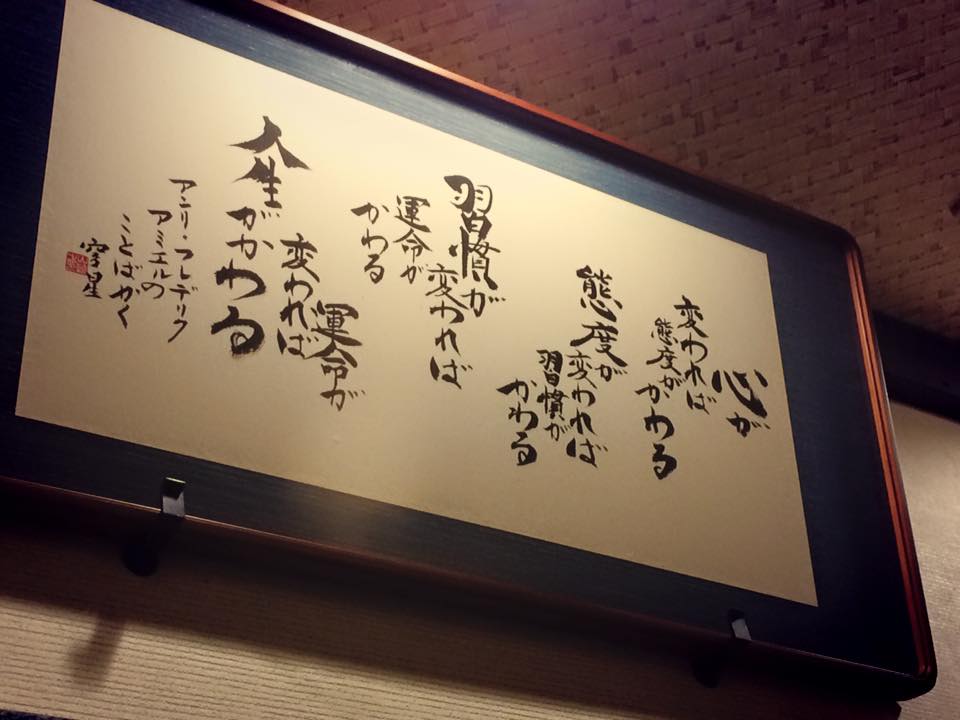 心が
変われば
態度が
かわる
態度が
変われば
習慣が
かわる
習慣が
変われば
運命が
かわる
運命が
変われば
人生
がかわる
アンリ・フレデリク
アミエルの
ことばかく